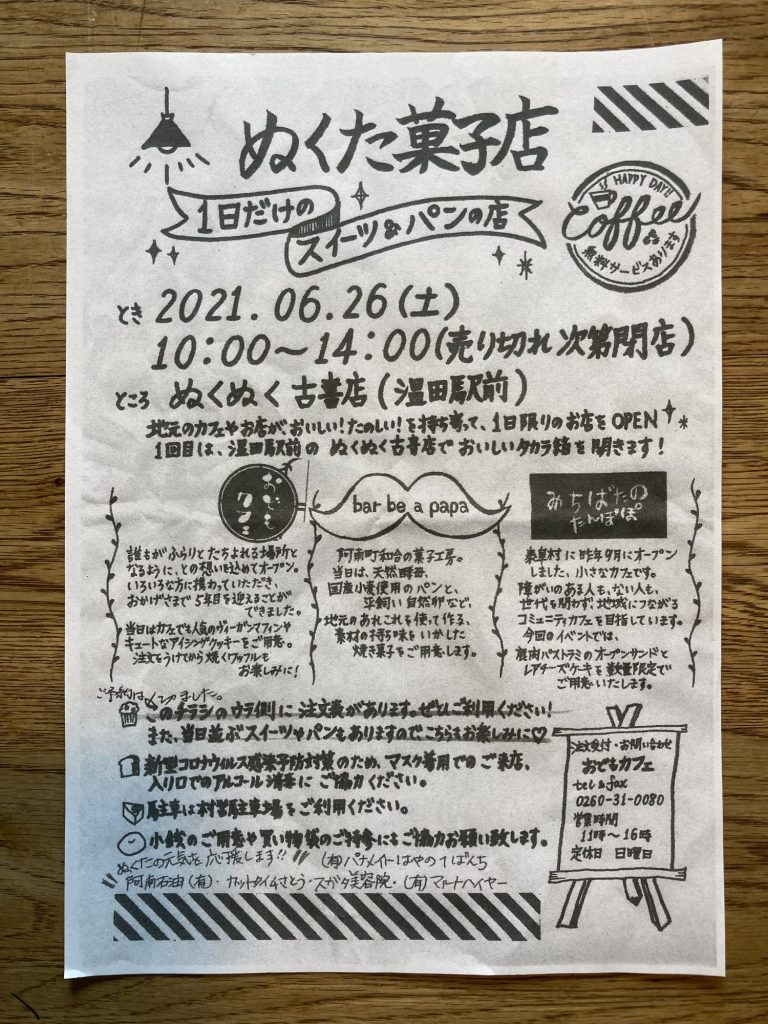 ぬくた菓子店
1日だけの
スイーツ&パンの店
IT'S HAPPY DAY!!
Coffee
無料サービスあります
とき 2021.06.26(土)
10:00〜14:00(売り切れ次第閉店)
ところ ぬくぬく古書店(温田駅前)
地元のカフェやお店が、おいしい!たのしい!を持ち寄って、1日限りのお店をOPEN
1回目は、温田駅前のぬくぬく古書店でおいしいタカラ箱を開きます!
おどもカフェ
誰もがふらりとたちよれる場所と
なるように、との想いを込めてオープン。
いろいろな方に携わっていただき、
おかげさまで5年目を迎えることが
できました。
当日はカフェでも人気のヴィーガンマフィンや
キュートなアイシングクッキーをご用意。
注文をうけてから焼くワッフルも
お楽しみに!
bar be a papa
阿南町和合の菓子工房。
当日は、天然酵母、
国産小麦使用のパンと、
平飼い自然卵など、
地元のあれこれを使って作る、
素材の持ち味をいかした
焼き菓子をご用意します。
みちばたの
たんぽぽ
泰阜村に昨年9月にオープン
しました、小さなカフェです。
障がいのある人も、ない人も、
世代を問わず地域につながる
コミュニティカフェを目指しています。
今回のイベントでは、
鹿肉パストラミのオープンサンドと
レアチーズケーキを数量限定で
ご用意いたします。
ご予約は〆切りました。
このチラシのウラ側に注文表があります。ぜひご利用ください!
また、当日並ぶスイーツやパンもありますのでこちらもお楽しみに♡
新型コロナウィルス感染予防対策のため、マスク着用でのご来店、
入り口でのアルコール消毒にご協力ください。
駐車は村営駐車場をご利用ください。
小銭のご用意や買い物袋のご持参にもご協力お願い致します。
ぬくたの元気を応援します!! (有)パナメイトはやのてばんち
阿南石油(有)・カットタイムさとう・スガタ美容院・(有)マルトハイヤー
注文受付・お問い合わせ
おどもカフェ
tel&fax
0260-31-0080
営業時間
11時〜16時
定休日 日曜日